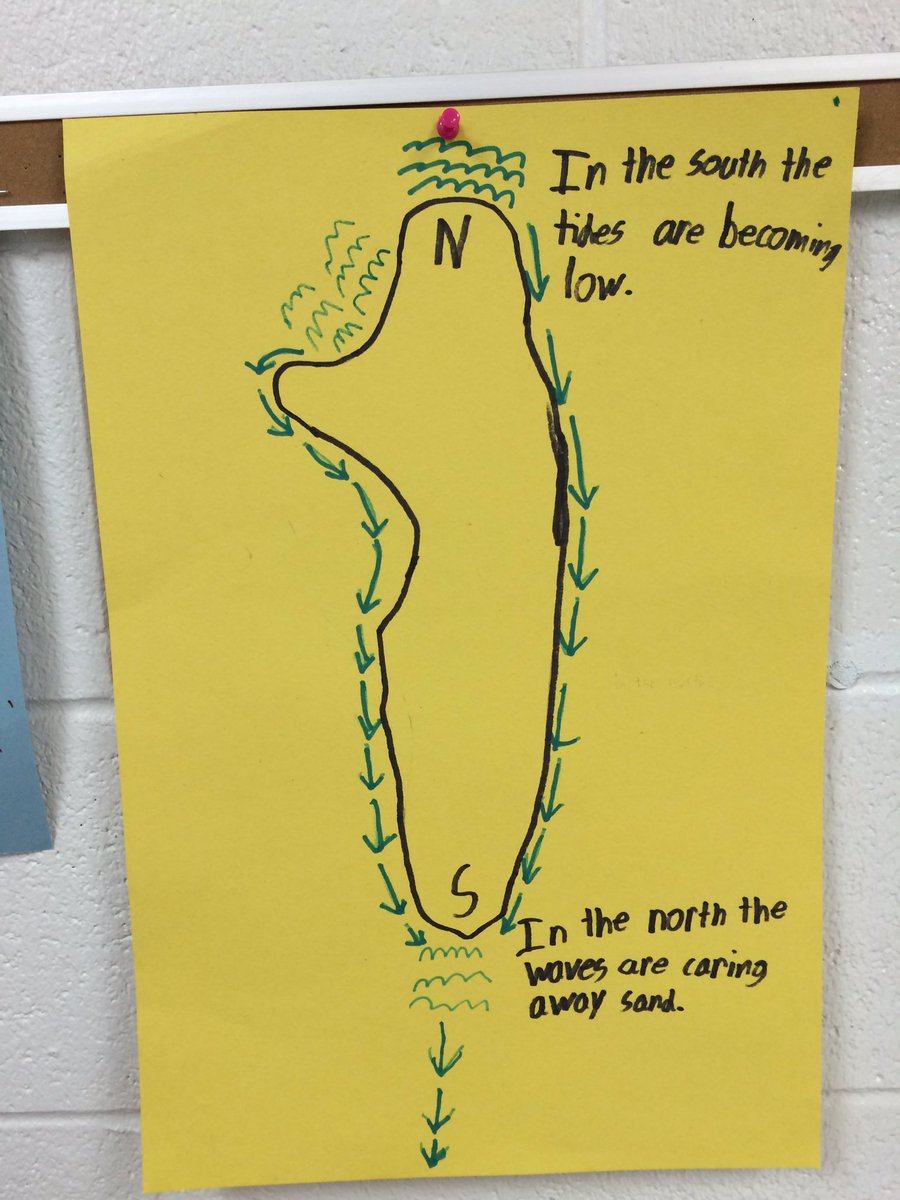 N
In the south the
tides are becoming
low.
S
In the north the
waves are caring
away sand.